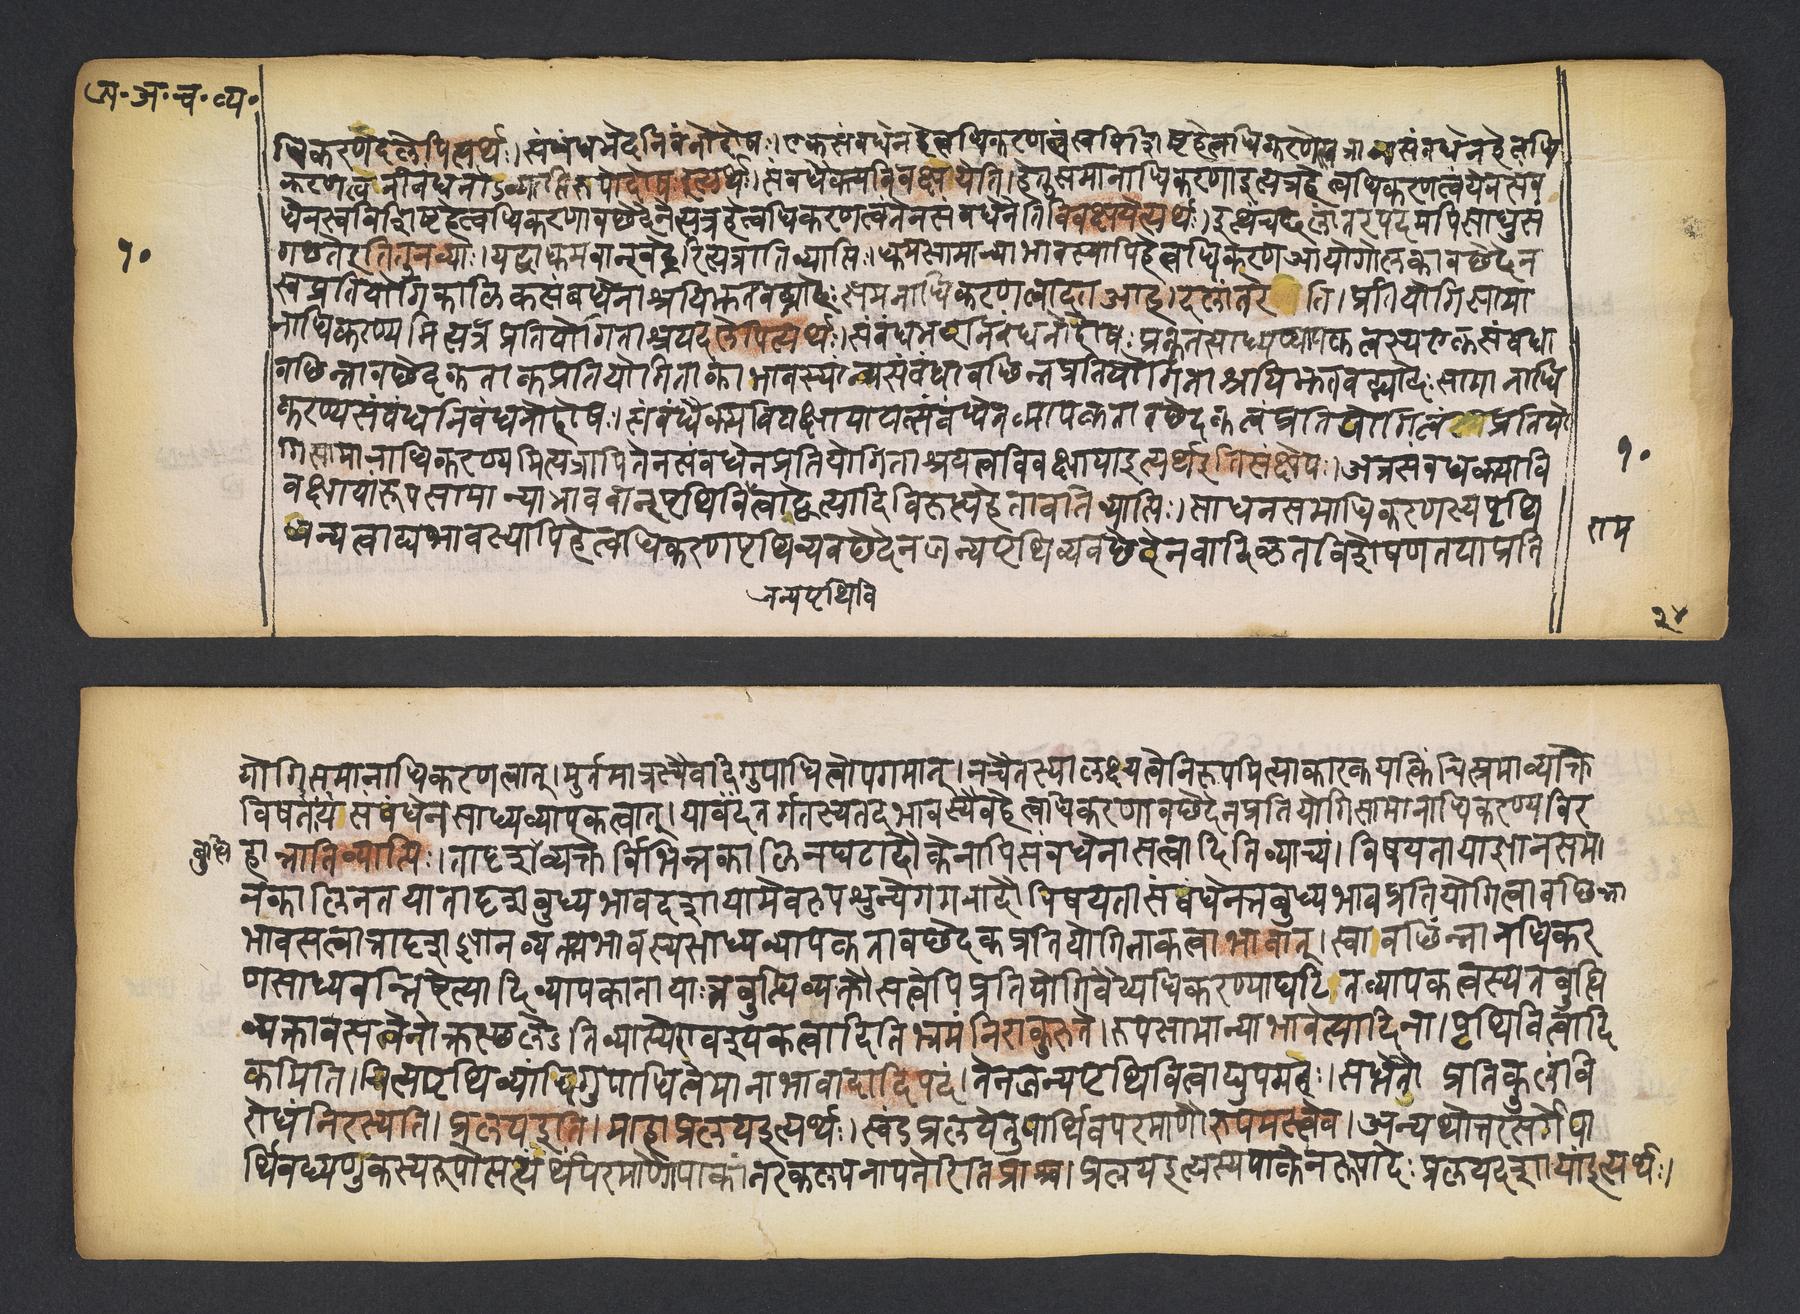 अ॰ अ॰ च॰ व्य॰
धिकरणेदलेपित्यर्थः।संबंधभेदनिबंनोदोषः।एकसंबधेनहेत्वधिकरणत्वंस्वविशिष्टहेत्वधिकरणेत्वन्नान्यसंबधेनहेत्वधि
करणत्वनीबधनोऽव्याप्तिरूपोदोषइत्यर्थः।संबधैक्यविवक्षयेति।हेतुसमानाधिकरणाइत्यत्रहेत्वधिकरणत्वंयेनसंब
धेनस्वविशिष्टहेत्वधिकरणावछेदेनेत्यत्रहेत्वधिकरणत्वंतेनसंबधेनेतिविवक्षयेत्यर्थः।इत्थंचदलांतरपदमपिसाधुसं
१०
गछतेइतितुनव्याः।यद्वाधूमवान्वन्हेरित्यत्रातिव्याप्तिः।धूमसामान्याभावस्यापिहेत्वधिकरणअयोगोलकावछेदेन
स्वप्रतियोगिकालिकसंबधेनाश्रयिभूतवन्ह्यादेः समनाधिकरणत्वादत आह।दलांतरेति।प्रतियोगिसामा
नाधिकरण्यमित्यत्र प्रतियोगिताश्रयदलेपित्यर्थः।संबंधभेदनिबंधनोदोषः प्रकृतसाध्यव्यापकत्वस्यएकसंबधा
वछिन्नावछेदकताकप्रतियोगिताकाभावस्यान्यसंबंधावछिन्नप्रतियोगिताश्रयिभूतवन्ह्यादेः सामानाधि
करण्यसंबंधनिबंधनोदोषः।संबंधैक्यविवक्षायायत्संबंधेनव्यापकतावछेदकत्वंप्रतियोगित्वं प्रतियो
गिसामानाधिकरण्यमित्यत्रापितेनसंबधेनप्रतियोगिताश्रयत्वविवक्षायाइत्यर्थइतिसंक्षेपः।अत्रसंबधैक्यावि
१०
वक्षायांरूपसामान्याभाववान्पृथिवित्वादित्यादिविरुत्धहेतावतिव्याप्तिः।साधनसमाधिकरणस्यपृथि
अन्यत्वाद्यभावस्यापिहेत्वधिकरणपृथिव्यवछेदेनजन्यपृथिव्यवछेदेनवादिक्रुतविशेषणतयाप्रति
राम
जन्यपृथिवि
२४
योगिसमानाधिकरणत्वात्।मुर्तमात्रस्यैवादिगुपाधित्वोपगमात्।नचैतस्यालक्षयत्वेनिरूपमित्याकारकयत्किंचित्प्रमाव्यक्ते
विषतयसंबंधेनसाध्यव्यापकत्वात्।यावेदतर्गतस्यतदभावस्यैवहेत्वाधिकरणावछेदेनप्रतियोगिसामानाधिकरण्यविर
हान्नातिव्याप्तिः।तादृशव्यक्तेर्विभिन्नकालिनघटादौकेनापिसंबधेनासत्वादितिव्याच्यं।विषयतायाज्ञानसमा
नकालिनतयातादृशबुध्यभावदशायामेवरुपशुन्येगगनादौविषयतासंबंधेनतबुध्यभावप्रतियोगित्वावछिन्ना
भावसत्वात्तादृशज्ञानव्यक्त्यभावस्यसाध्यव्यापकतावछेदकप्रतियोगिताकत्वाभावात्।स्वावछिन्नानधिकर
णसाध्यवन्निष्टेत्यादिव्यापकातायाःतबुत्धिव्यक्तौसत्वेपिप्रतियोगिवैय्यधिकरण्याघटितव्यापकत्वस्यतबुत्धि
व्यक्तावसत्वेनोक्तस्थलेऽतिव्याप्त्येरावश्यकत्वादितिभ्रमंनिराकुरुते।रूपसामान्याभावेत्यादिना।पृथिवित्वादि
कमिति।नित्यपृथिव्यांधिगुपाधित्वेमानाभावादादिपदं।तेनजन्यपृथिवित्वाद्युपमतेः।सर्भेतौ प्रतिकुलांवि
रोधंनिरस्यति।प्रलयइति।माहाप्रलयइत्यर्थः।खंडप्रलयेतुपार्थिवपरमाणौरुपमस्त्येव।अन्यथोत्तरसर्गेपा
र्थिवद्यणुकस्यरूपोत्सत्यंर्थंपरमाणौपाकांतरकलपनापत्तेरितिप्राञ्च।प्रलयइत्यस्यपाकेनरूपादेः प्रलयदशायांइत्यर्थः।